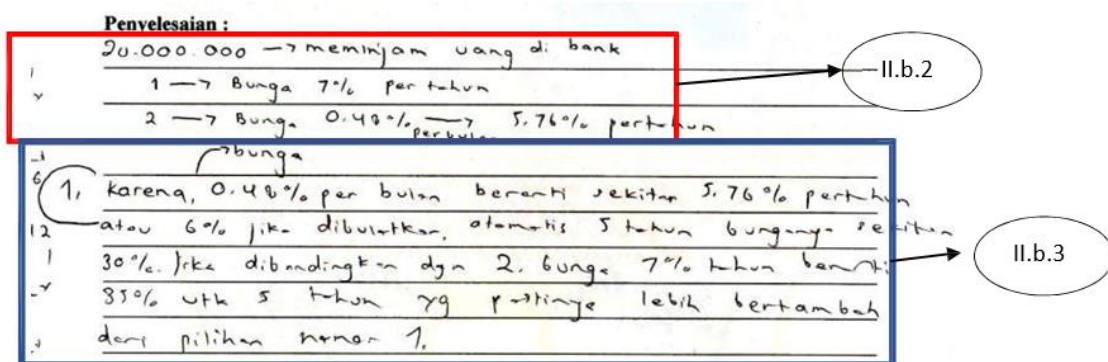 Penyelesaian :
20.000.000 → meminjam uang di bank
1 → Bunga 7% per tahun
2 → Bunga 0.48% → 5.76% pertahun
perbulan
II.b.2
bunga
1. Karena, 0.48% per bulan berarti sekitar 5.76% pertahun
atau 6% jika dibulatkan, otomatis 5 tahun bunganya sekitar
30%. Jika dibandingkan dgn 2. bunga 7% tahun berarti
II.b.3
35% utk 5 tahun yg pastinya lebih bertambah
dari pilihan nomor 1.